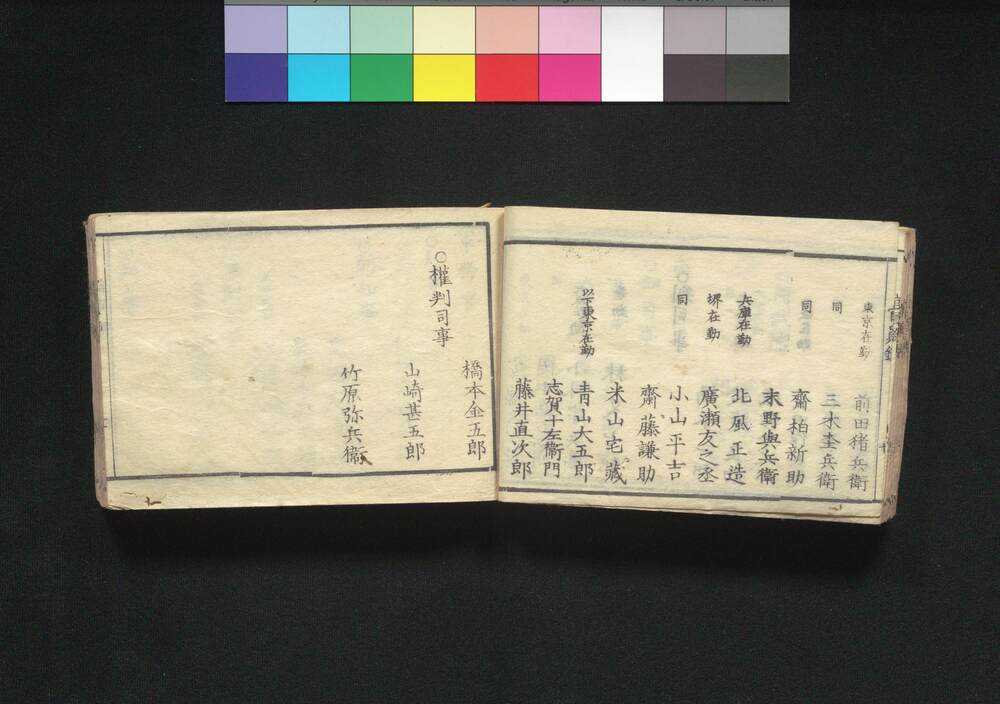 東京在勤 前田猪兵衛
同 三木圭兵衛
同 齋柏新助
末野與兵衛
兵庫在勤 北風正造
堺在勤 廣瀬友之丞
同 小山平吉
齋藤謙助
米山宅藏
以下東京在勤 青山大五郎
志賀十左衛門
藤井直次郎
橋本金五郎
○權判司事
山崎甚五郎
竹原弥兵衛